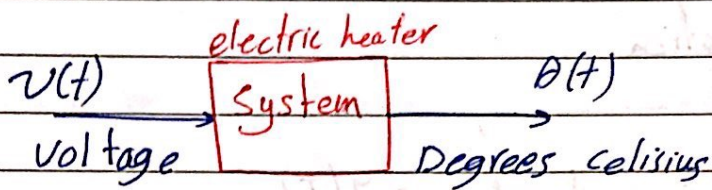 electric heater
v(t) θ(t)
System
voltage Degrees celisius